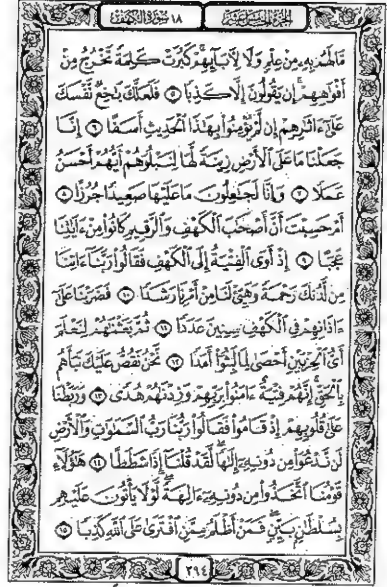 الجزء الخامس عشر
١٨ سورة الكهف
مَّا لَهُم بِهِۦ مِنْ عِلْمٍ وَلَا لِـَٔابَآئِهِمْ ۚ كَبُرَتْ كَلِمَةً تَخْرُجُ مِنْ
أَفْوَٰهِهِمْ ۚ إِن يَقُولُونَ إِلَّا كَذِبًا ٥ فَلَعَلَّكَ بَٰخِعٌ نَّفْسَكَ
عَلَىٰٓ ءَاثَٰرِهِمْ إِن لَّمْ يُؤْمِنُوا۟ بِهَٰذَا ٱلْحَدِيثِ أَسَفًا ٦ إِنَّا
جَعَلْنَا مَا عَلَى ٱلْأَرْضِ زِينَةً لَّهَا لِنَبْلُوَهُمْ أَيُّهُمْ أَحْسَنُ
عَمَلًا ٧ وَإِنَّا لَجَٰعِلُونَ مَا عَلَيْهَا صَعِيدًا جُرُزًا ٨
أَمْ حَسِبْتَ أَنَّ أَصْحَٰبَ ٱلْكَهْفِ وَٱلرَّقِيمِ كَانُوا۟ مِنْ ءَايَٰتِنَا
عَجَبًا ٩ إِذْ أَوَى ٱلْفِتْيَةُ إِلَى ٱلْكَهْفِ فَقَالُوا۟ رَبَّنَآ ءَاتِنَا
مِن لَّدُنكَ رَحْمَةً وَهَيِّئْ لَنَا مِنْ أَمْرِنَا رَشَدًا ١٠ فَضَرَبْنَا عَلَىٰٓ
ءَاذَانِهِمْ فِى ٱلْكَهْفِ سِنِينَ عَدَدًا ١١ ثُمَّ بَعَثْنَٰهُمْ لِنَعْلَمَ
أَىُّ ٱلْحِزْبَيْنِ أَحْصَىٰ لِمَا لَبِثُوٓا۟ أَمَدًا ١٢ نَّحْنُ نَقُصُّ عَلَيْكَ نَبَأَهُم
بِٱلْحَقِّ ۚ إِنَّهُمْ فِتْيَةٌ ءَامَنُوا۟ بِرَبِّهِمْ وَزِدْنَٰهُمْ هُدًى ١٣ وَرَبَطْنَا
عَلَىٰ قُلُوبِهِمْ إِذْ قَامُوا۟ فَقَالُوا۟ رَبُّنَا رَبُّ ٱلسَّمَٰوَٰتِ وَٱلْأَرْضِ
لَن نَّدْعُوَا۟ مِن دُونِهِۦٓ إِلَٰهًا ۖ لَّقَدْ قُلْنَآ إِذًا شَطَطًا ١٤ هَٰٓؤُلَآءِ
قَوْمُنَا ٱتَّخَذُوا۟ مِن دُونِهِۦٓ ءَالِهَةً ۖ لَّوْلَا يَأْتُونَ عَلَيْهِم
بِسُلْطَٰنٍۭ بَيِّنٍ ۖ فَمَنْ أَظْلَمُ مِمَّنِ ٱفْتَرَىٰ عَلَى ٱللَّهِ كَذِبًا ١٥
٢٩٤